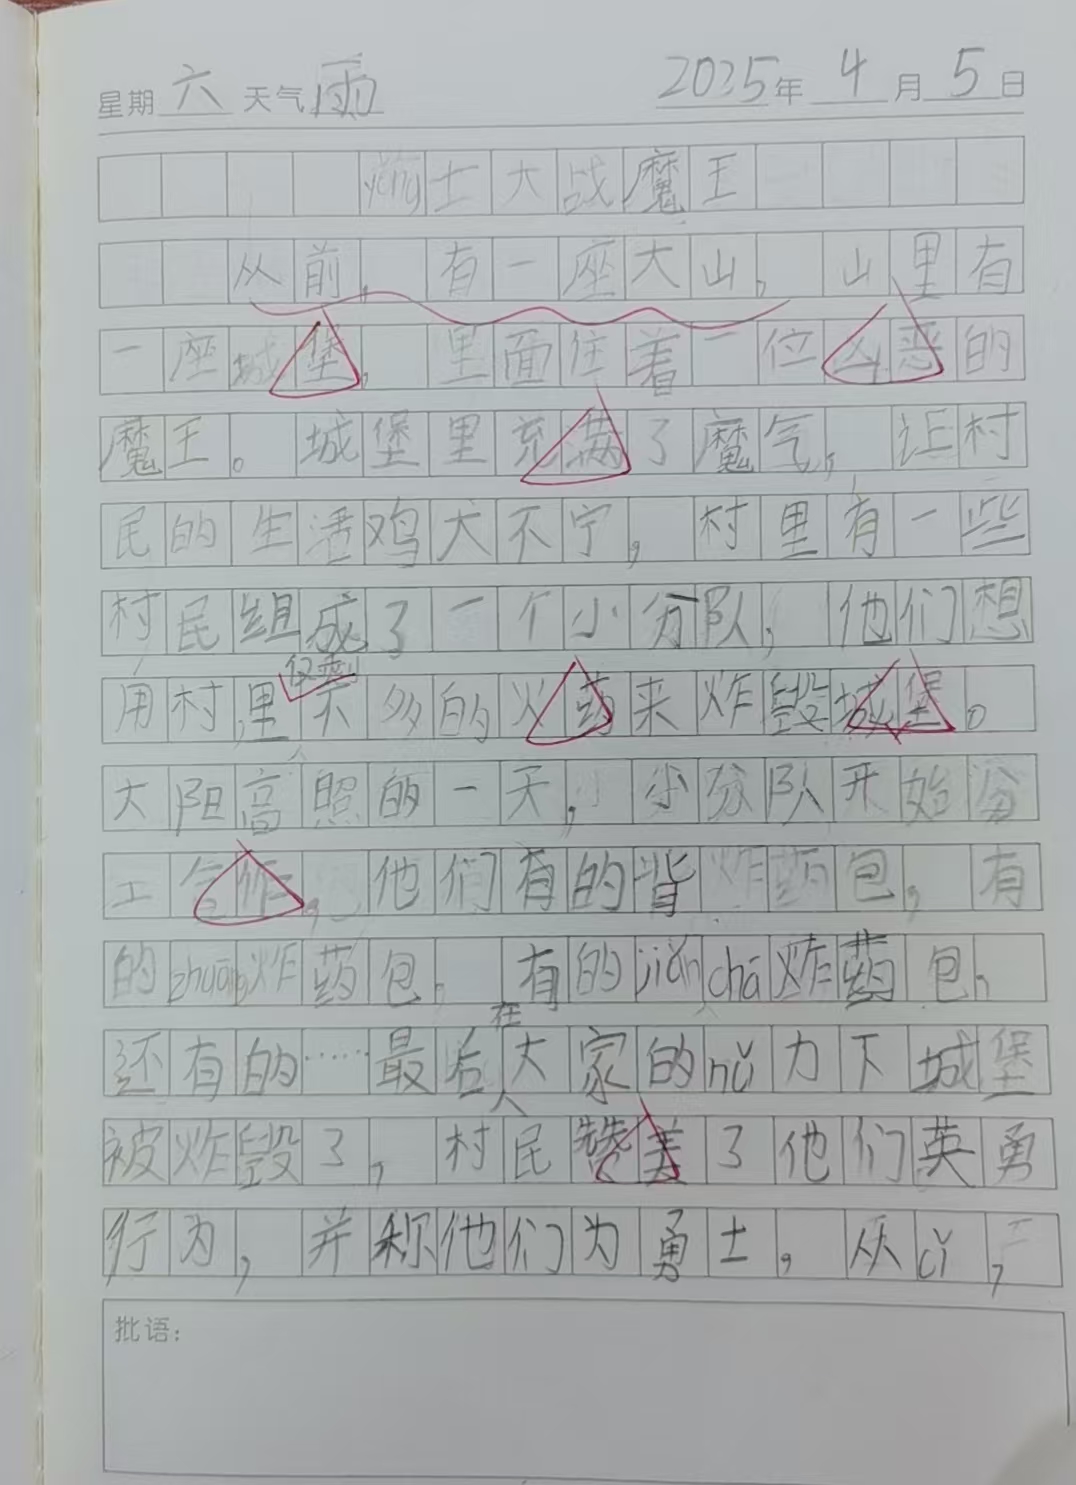 星期六 天气雨 2025年4月5日
yǒng士大战魔王
从前，有一座大山，山里有
一座城堡，里面住着一位凶恶的
魔王。城堡里充满了魔气，让村
民的生活鸡犬不宁，村里有一些
村民组成了一个小分队，他们想
用村里仅剩不多的火药来炸毁城堡。
大阳高照的一天，小分队开始分
工合作，他们有的背炸药包，有
的zhuāng炸药包，有的jiǎn chá炸药包，
还有的……最后在大家的nǔ力下城堡
被炸毁了，村民赞美了他们英勇
行为，并称他们为勇士。从cǐ，
批语：